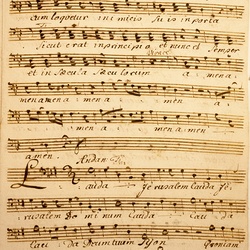 cum loquetur inimicis Suis in porta
Sicut erat in principio et nunc et Semper
et in Secula Seculorum a mena
mena mena men a men a
men a men a men
amen.
Andante
Lauda Jerusalem Lauda Je
rusalem Dominum Lauda Lau da
Lau da Deum tuum Syon Quoniam